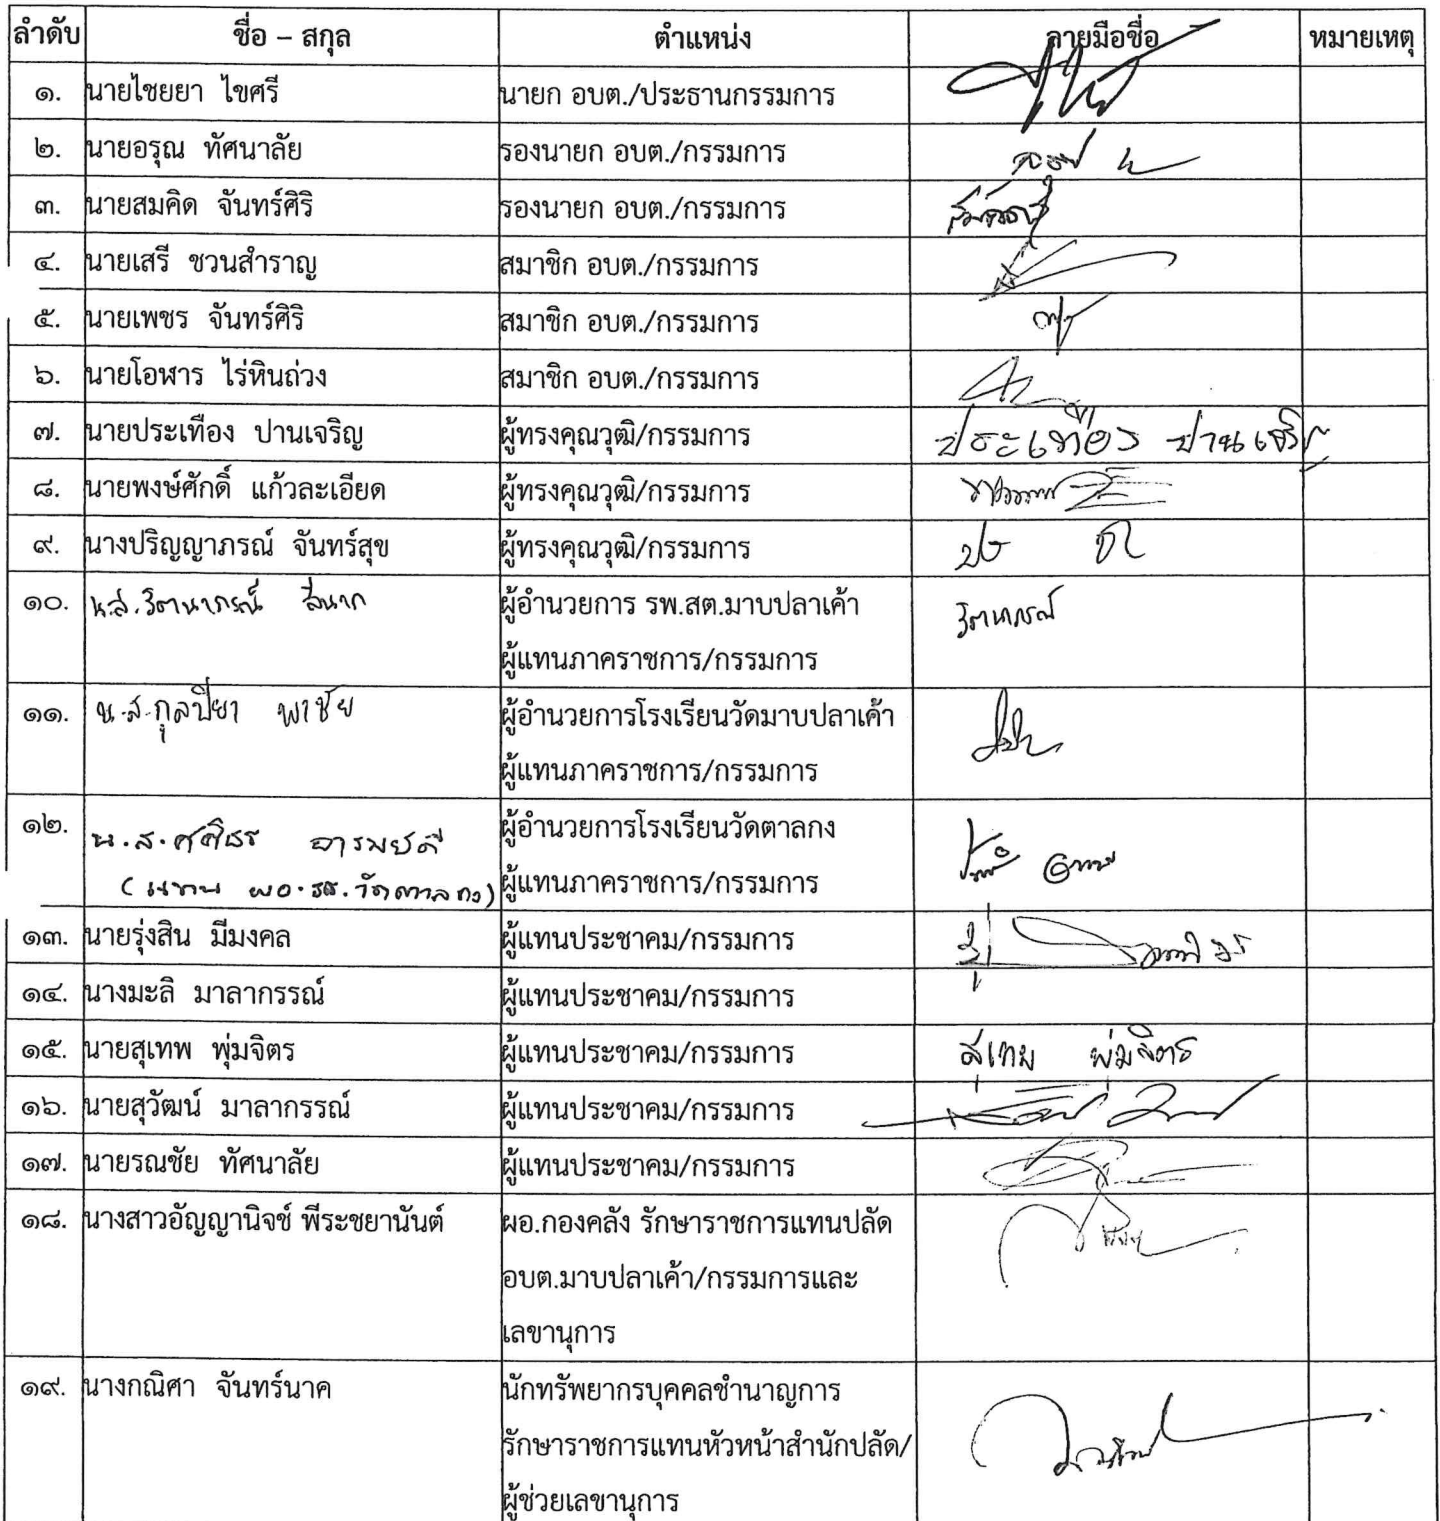 ลำดับ ชื่อ – สกุล ตำแหน่ง ลายมือชื่อ หมายเหตุ
๑. นายไชยยา ไขศรี นายก อบต./ประธานกรรมการ
๒. นายอรุณ ทัศนาลัย รองนายก อบต./กรรมการ
๓. นายสมคิด จันทร์ศิริ รองนายก อบต./กรรมการ
๔. นายเสรี ชวนสำราญ สมาชิก อบต./กรรมการ
๕. นายเพชร จันทร์ศิริ สมาชิก อบต./กรรมการ
๖. นายโอฬาร ไร่หินถ่วง สมาชิก อบต./กรรมการ
๗. นายประเทือง ปานเจริญ ผู้ทรงคุณวุฒิ/กรรมการ ประเทือง ปานเจริญ
๘. นายพงษ์ศักดิ์ แก้วละเอียด ผู้ทรงคุณวุฒิ/กรรมการ
๙. นางปริญญาภรณ์ จันทร์สุข ผู้ทรงคุณวุฒิ/กรรมการ
๑๐. น.ส. ผู้อำนวยการ รพ.สต.มาบปลาเค้า
ผู้แทนภาคราชการ/กรรมการ
๑๑. น.ส.กุลปิยา พาชัย ผู้อำนวยการโรงเรียนวัดมาบปลาเค้า
ผู้แทนภาคราชการ/กรรมการ
๑๒. น.ส.ศศิธร อารมย์ดี ผู้อำนวยการโรงเรียนวัดตาลกง
(แทน ผอ.รร.วัดตาลกง) ผู้แทนภาคราชการ/กรรมการ
๑๓. นายรุ่งสิน มีมงคล ผู้แทนประชาคม/กรรมการ
๑๔. นางมะลิ มาลากรรณ์ ผู้แทนประชาคม/กรรมการ
๑๕. นายสุเทพ พุ่มจิตร ผู้แทนประชาคม/กรรมการ สุเทพ พุ่มจิตร
๑๖. นายสุวัฒน์ มาลากรรณ์ ผู้แทนประชาคม/กรรมการ
๑๗. นายรณชัย ทัศนาลัย ผู้แทนประชาคม/กรรมการ
๑๘. นางสาวอัญญานิจช์ พีระชยานันต์ ผอ.กองคลัง รักษาราชการแทนปลัด
อบต.มาบปลาเค้า/กรรมการและ
เลขานุการ
๑๙. นางกณิศา จันทร์นาค นักทรัพยากรบุคคลชำนาญการ
รักษาราชการแทนหัวหน้าสำนักปลัด/
ผู้ช่วยเลขานุการ